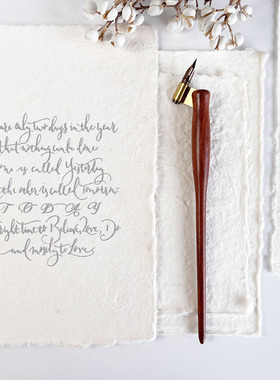 are only two days in the year
that nothing can be done
one is called Yesterday
the other is called Tomorrow:
TODAY
right time to Believe, Love, Do
and mostly to Love.